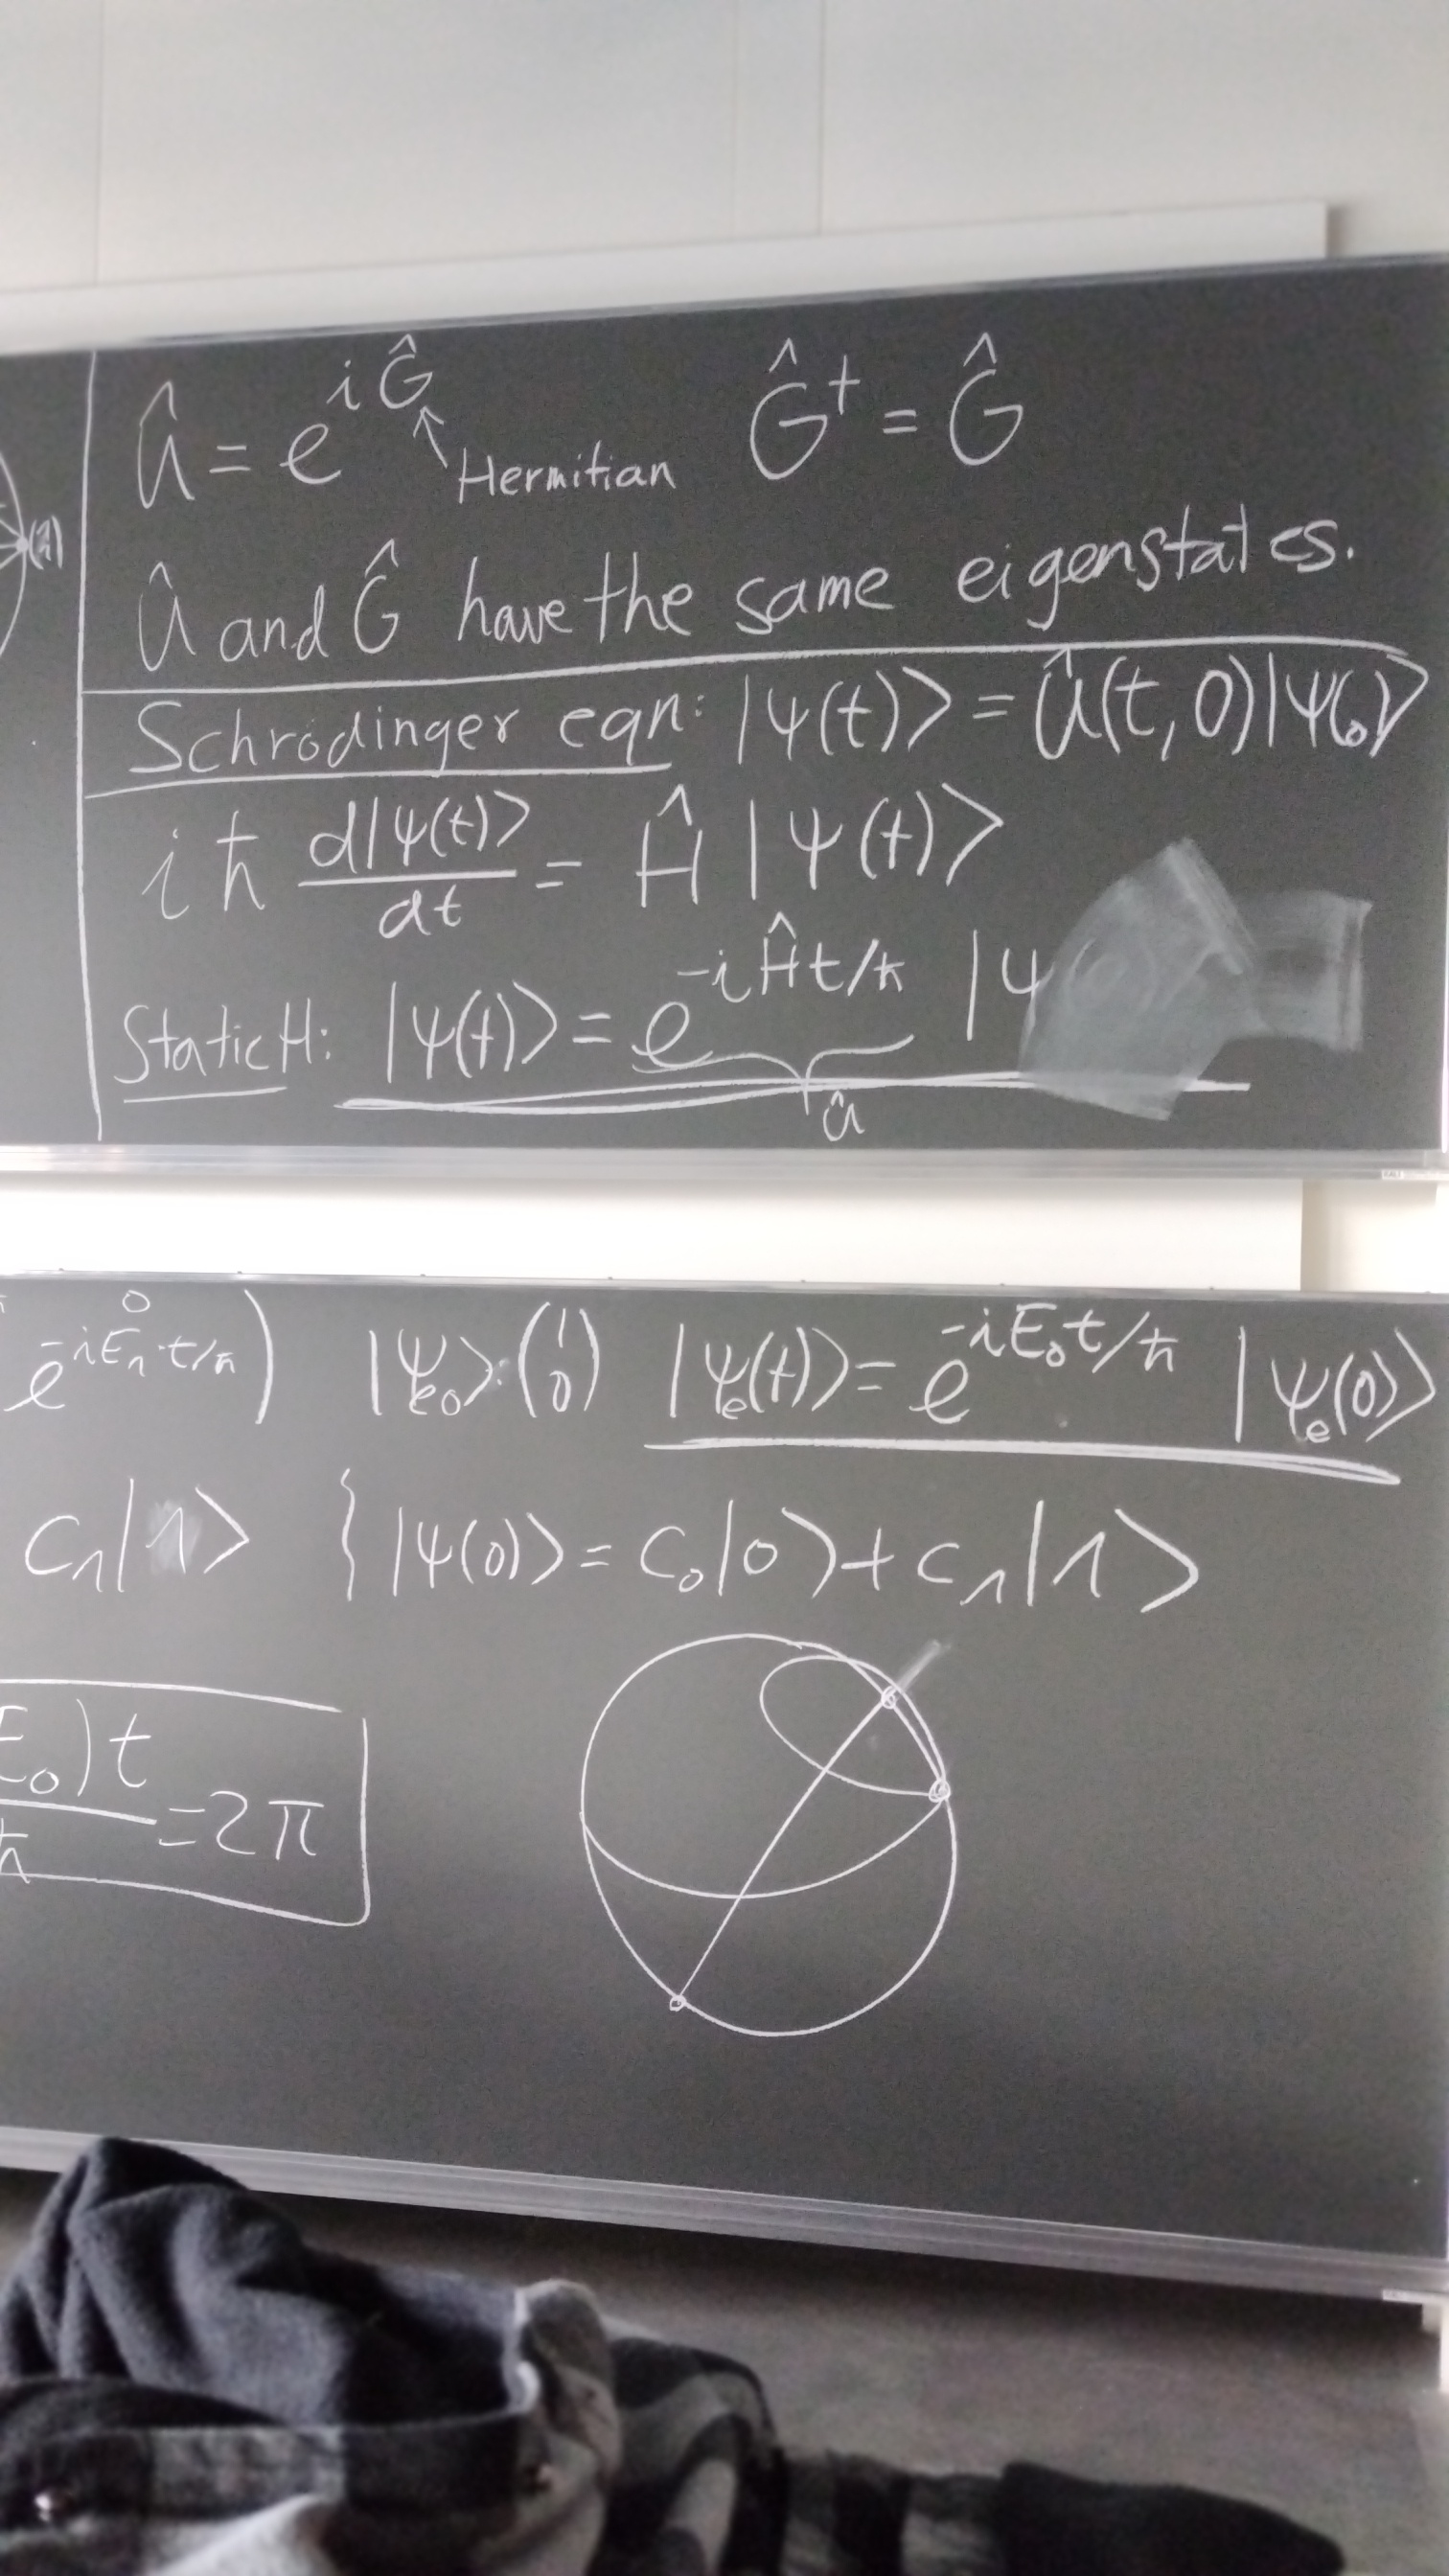 Û = e^{iĜ} ↖ Hermitian Ĝ† = Ĝ
Û and Ĝ have the same eigenstates.
Schrödinger eqn: |ψ(t)⟩ = Û(t,0)|ψ(0)⟩
iħ d|ψ(t)⟩/dt = Ĥ |ψ(t)⟩
Static H: |ψ(t)⟩ = e^{-iĤt/ħ} |ψ
Û
0
e^{-iE₁t/ħ}) |ψ_{e0}⟩: (1 0) |ψ_e(t)⟩ = e^{-iE₀t/ħ} |ψ_e(0)⟩
c₁|1⟩ { |ψ(0)⟩ = c₀|0⟩ + c₁|1⟩
E₀)t/ħ = 2π